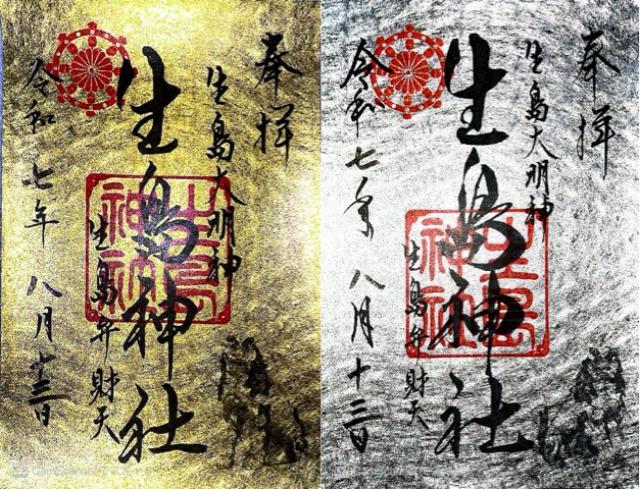 奉拝
生島大明神
生島神社
生島弁財天
令和七年八月十三日
奉拝
生島大明神
生島神社
生島弁財天
令和七年八月十三日
生島神社
生島神社